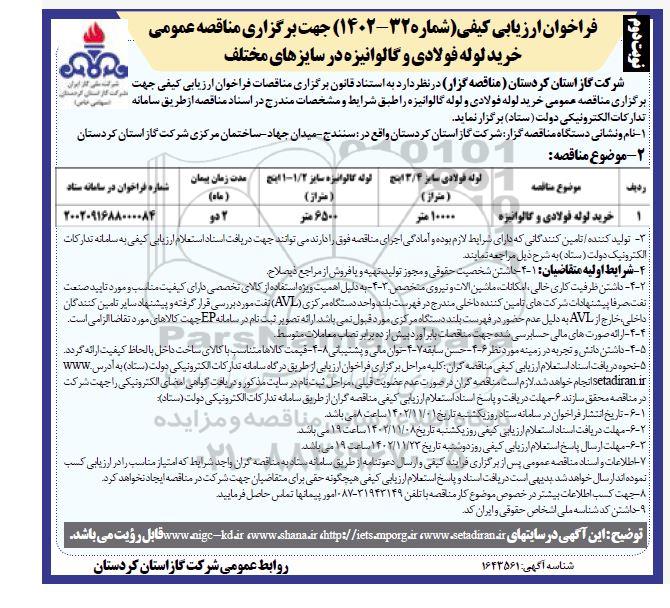 نوبت دوم
فراخوان ارزیابی کیفی (شماره ۳۲-۱۴۰۲) جهت برگزاری مناقصه عمومی
خرید لوله فولادی و گالوانیزه در سایزهای مختلف
شرکت ملی گاز ایران
شرکت گاز استان کردستان
(سهامی خاص)
شرکت گاز استان کردستان (مناقصه گزار) در نظر دارد به استناد قانون برگزاری مناقصات فراخوان ارزیابی کیفی جهت
برگزاری مناقصه عمومی خرید لوله فولادی و لوله گالوانیزه را طبق شرایط و مشخصات مندرج در اسناد مناقصه از طریق سامانه
تدارکات الکترونیکی دولت (ستاد) برگزار نماید.
۱-نام و نشانی دستگاه مناقصه گزار: شرکت گاز استان کردستان واقع در: سنندج-میدان جهاد-ساختمان مرکزی شرکت گاز استان کردستان
۲-موضوع مناقصه:
ردیف موضوع مناقصه لوله فولادی سایز ۳/۴ اینچ (متراژ) لوله گالوانیزه سایز ۱/۲-۱ اینچ (متراژ) مدت زمان پیمان (ماه) شماره فراخوان در سامانه ستاد
۱ خرید لوله فولادی و گالوانیزه ۱۰۰۰۰ متر ۶۵۰۰ متر ۲ دو ۲۰۰۲۰۹۱۶۸۸۰۰۰۰۸۴
۳- تولید کننده / تامین کنندگانی که دارای شرایط لازم بوده و آمادگی اجرای مناقصه فوق را دارند می توانند جهت دریافت اسناد استعلام ارزیابی کیفی به سامانه تدارکات
الکترونیک دولت (ستاد) به شرح ذیل مراجعه نمایند.
۴-شرایط اولیه متقاضیان: ۱-۴-داشتن شخصیت حقوقی و مجوز تولید، تهیه و یا فروش از مراجع ذیصلاح.
۲-۴-داشتن ظرفیت کاری خالی، امکانات، ماشین آلات و نیروی متخصص ۳-۴-به دلیل اهمیت ویژه استفاده از کالای تخصصی دارای کیفیت مناسب و مورد تایید صنعت
نفت، صرفا پیشنهادات شرکت های تامین کننده داخلی مندرج در فهرست بلند واحد دستگاه مرکزی (AVL) نفت مورد بررسی قرار گرفته و پیشنهاد سایر تامین کنندگان
داخلی، خارج از AVL به دلیل عدم حضور در فهرست بلند دستگاه مرکزی مورد قبول نمی باشد. ارائه تصویر ثبت نام در سامانه EP جهت کالاهای مورد تقاضا الزامی است.
۴-۴-ارائه صورت های مالی حسابرسی شده جهت مناقصات با برآورد بیش از ده برابر نصاب معاملات متوسط.
۵-۴-داشتن دانش و تجربه در زمینه مورد نظر ۶-۴-حسن سابقه ۷-۴-توان مالی و پشتیبانی ۸-۴-قیمت کالاها متناسب با کالای ساخت داخل با لحاظ کیفیت ارائه گردد.
۵-نحوه دریافت اسناد استعلام ارزیابی کیفی مناقصه گران: کلیه مراحل برگزاری فراخوان ارزیابی از طریق درگاه سامانه تدارکات الکترونیکی دولت (ستاد) به آدرس www.
setadiran.ir انجام خواهد شد. لازم است مناقصه گران در صورت عدم عضویت قبلی، مراحل ثبت نام در سایت مذکور و دریافت گواهی امضای الکترونیکی را جهت شرکت
در مناقصه محقق سازند. ۶-مهلت دریافت و پاسخ اسناد استعلام ارزیابی کیفی مناقصه گران از طریق سامانه تدارکات الکترونیکی دولت (ستاد):
۱-۶-تاریخ انتشار فراخوان در سامانه ستاد روز یکشنبه تاریخ ۱۴۰۲/۱۱/۰۱ ساعت ۸ می باشد.
۲-۶-مهلت دریافت اسناد استعلام ارزیابی کیفی روز یکشنبه تاریخ ۱۴۰۲/۱۱/۰۸ ساعت ۱۹ می باشد.
۳-۶-مهلت ارسال پاسخ استعلام ارزیابی کیفی روز دوشنبه تاریخ ۱۴۰۲/۱۱/۲۳ ساعت ۱۹ می باشد.
۷-اطلاعات و اسناد مناقصه عمومی پس از برگزاری فرآیند کیفی و ارسال دعوتنامه از طریق سامانه ستاد به مناقصه گران واجد شرایط که امتیاز مناسب را در ارزیابی کسب
نموده اند ارسال خواهد شد. بدیهی است دریافت اسناد و پاسخ استعلام ارزیابی کیفی هیچگونه حقی برای متقاضیان جهت شرکت در مناقصه ایجاد نخواهد کرد.
۸-جهت کسب اطلاعات بیشتر در خصوص موضوع کار مناقصه با تلفن ۳۱۹۴۳۱۴۹-۰۸۷ امور پیمانها تماس حاصل فرمایید.
۹-داشتن کد شناسه ملی اشخاص حقوقی و ایران کد.
توضیح: این آگهی در سایتهای www.nigc-kd.ir ،www.shana.ir ،http://iets.mporg.ir ،www.setadiran.ir قابل رؤیت می باشد.
شناسه آگهی: ۱۶۴۳۵۶۱
روابط عمومی شرکت گاز استان کردستان